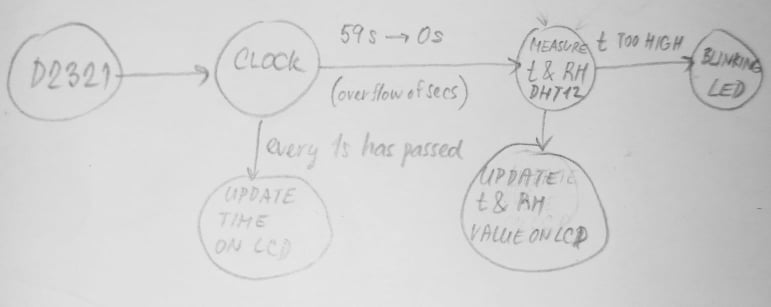 D2321
CLOCK
59s → 0s
(overflow of secs)
MEASURE
t & RH
DHT12
t TOO HIGH
BLINKING
LED
every 1s has passed
UPDATE
TIME
ON LCD
UPDATE
t & RH
VALUE ON LCD